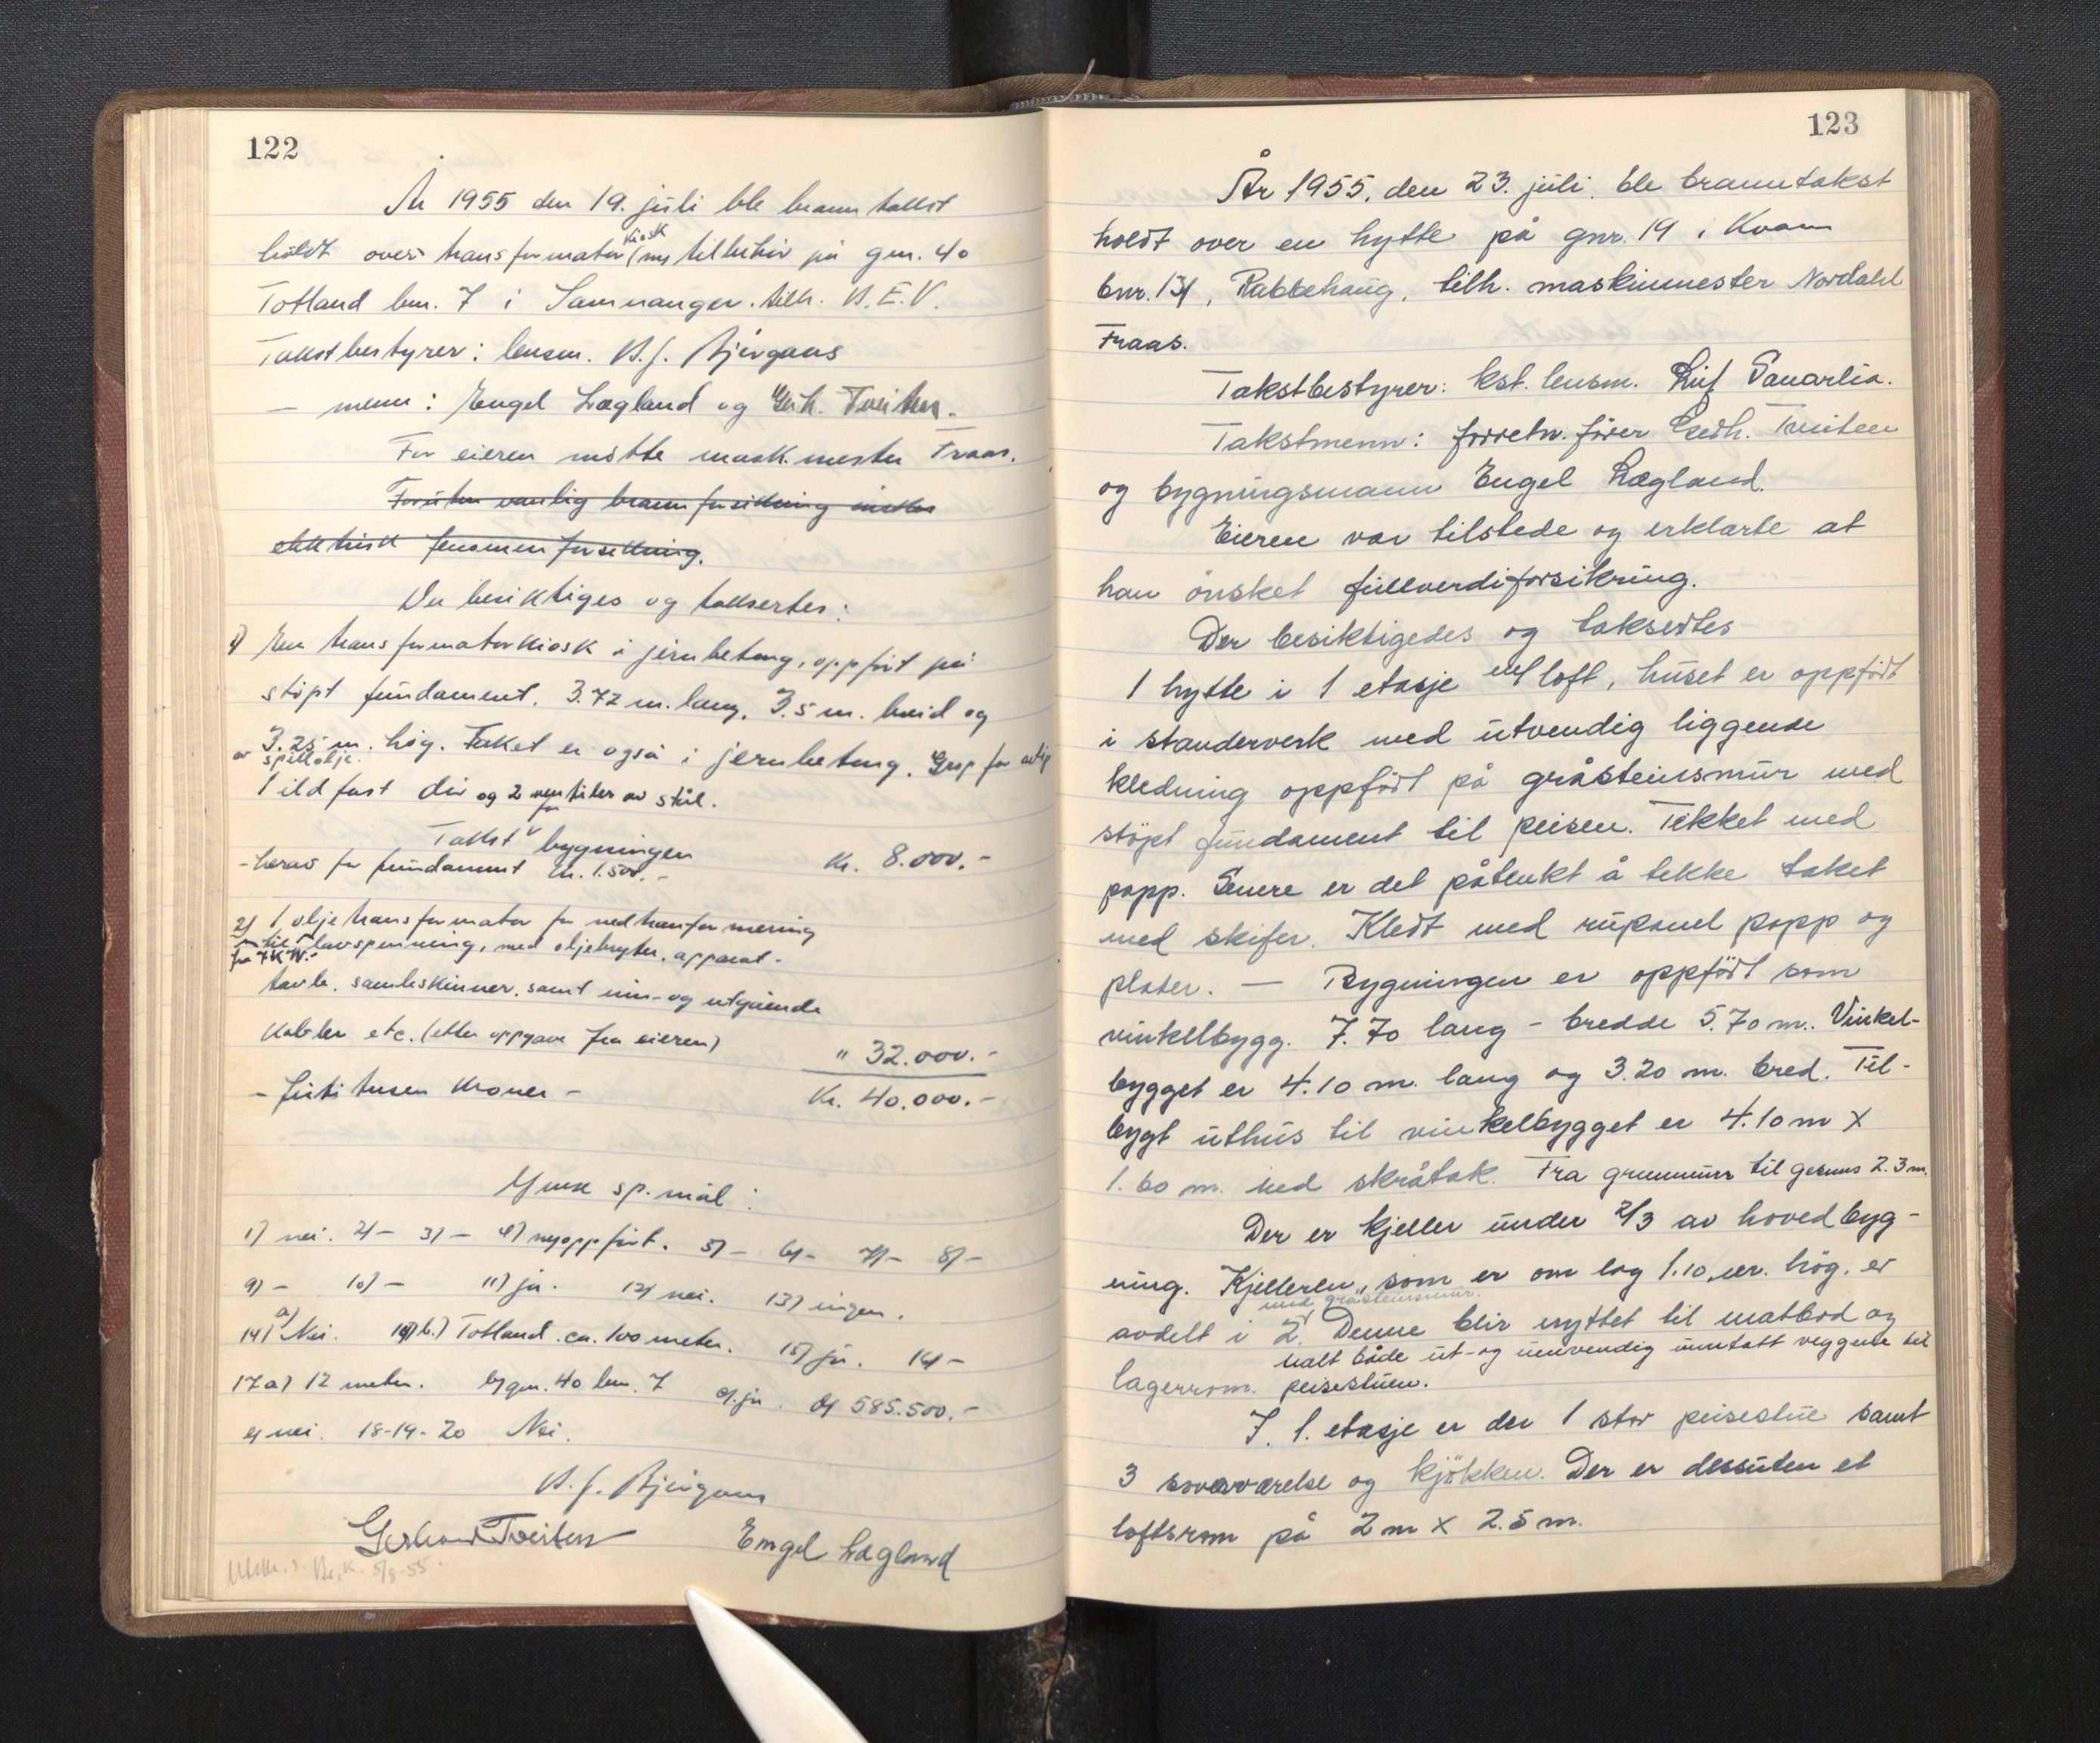 122
År 1955 den 19. juli ble branntakst
holdt over transformatorkiosk m/ tilbehör på gnr. 40
Totland bnr. 7 i Samnanger. tilh. B.E.V.
Takstbestyrer: lensm. B. J. Bjergaas
— menn: Engel Lægland og Gerh. Tveiten.
For eieren møtte mask.mester Fraas.
Foruten vanlig brannforsikring
elektrisk fenomenforsikring.
Der besiktiges og taksertes:
1) En transformatorkiosk i jernbetong, oppfört på
stöpt fundament. 3.72 m. lang, 3.5 m. breid og
3.25 m. hög. Taket er også i jernbetong. Grop for
av spillolje.
1 ildfast dör og 2 ventiler av stål.
Takst for bygningen Kr. 8.000.-
- herav for fundament kr. 1.500.-
2) 1 oljetransformator for nedtransformering
fra 7 K.W. til lavspenning, med oljebryter, apparat-
tavle, samleskinner, samt inn- og utgående
kabler etc. (etter oppgave fra eieren) " 32.000.-
- förti tusen kroner - Kr. 40.000.-
sp.mål:
1) nei. 2) - 3) - 4) nyoppfört. 5) - 6) - 7) - 8) -
9) - 10) - 11) ja. 12) nei. 13) ingen.
14) a) Nei. 14) b.) Totland ca. 100 meter. 15) ja. 16) -
17 a) 12 meter. b) gnr. 40 bnr. 7 c). ja. d) 585.500.-
e) nei. 18-19-20 Nei.
B. J. Bjergaas
Gerhard Tveiten Engel Lægland
5/8-55.
123
År 1955, den 23. juli ble branntakst
holdt over en hytte på gnr. 19 i Kvam
bnr. 131, Rabbehaug, tilh. maskinmester Nordahl
Fraas.
Takstbestyrer: kst. lensm. Leif Sanarlia.
Takstmenn: forretn. förer Gerh. Tveiten
og bygningsmann Engel Lægland.
Eieren var tilstede og erklærte at
han önsket fullverdiforsikring.
Der besiktigedes og taksertes
1 hytte i 1 etasje m/ loft, huset er oppfört
i standerverk med utvendig liggende
kledning oppfört på gråsteinsmur med
stöpt fundament til peisen. Tekket med
papp. Senere er det påtenkt å tekke taket
med skifer. Kledt med rupanel papp og
plater. — Bygningen er oppfört som
vinkelbygg. 7.70 lang - bredde 5.70 m. Vinkel-
bygget er 4.10 m. lang og 3.20 m. bred. Til-
bygt uthus til vinkelbygget er 4.10 m x
1.60 m. med skråtak. Fra grunnmur til gesims 2.3 m.
Der er kjeller under 2/3 av hovedbyg-
ning. Kjelleren, som er om lag 1.10 m. hög, er
med gråsteinsmur.
avdelt i 2. Denne blir nyttet til matbod og
malt både ut- og innvendig unntatt veggene til
lagerrom. peisestuen.
I 1. etasje er der 1 stor peisestue samt
3 soveværelse og kjökken. Der er dessuten et
loftsrom på 2 m x 2.5 m.